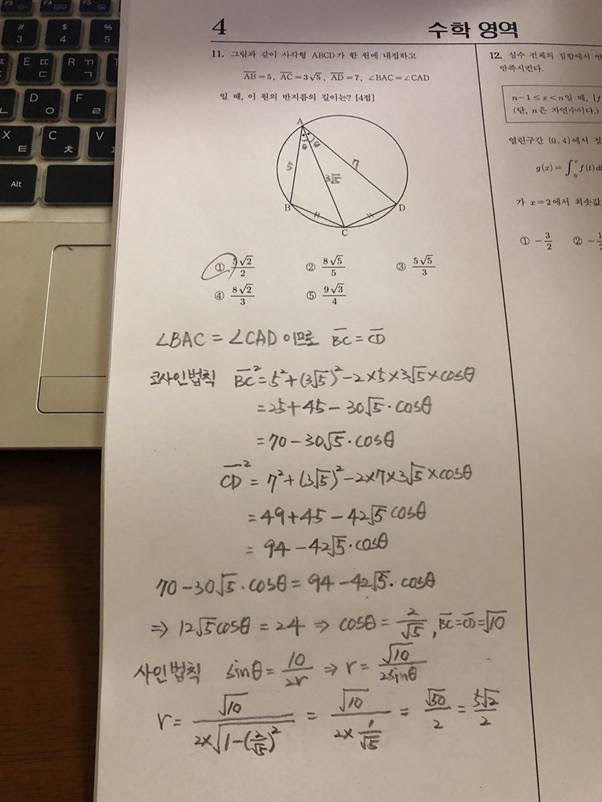 4
수학 영역
11. 그림과 같이 사각형 ABCD가 한 원에 내접하고
AB=5, AC=3√5, AD=7, ∠BAC=∠CAD
일 때, 이 원의 반지름의 길이는? [4점]
A
θ θ
5
3√5
7
B
C
D
① 5√2/2 ② 8√5/5 ③ 5√5/3
④ 8√2/3 ⑤ 9√3/4
12. 실수 전체의 집합에서
만족시킨다.
n-1≤x<n일 때, |f
(단, n은 자연수이다.)
열린구간 (0, 4)에서
g(x)=∫₀ˣ f(t)d
가 x=2에서 최솟값
① -3/2 ② -
∠BAC = ∠CAD 이므로 BC=CD
코사인법칙 BC²=5²+(3√5)²-2×5×3√5×cosθ
=25+45-30√5·cosθ
=70-30√5·cosθ
CD²=7²+(3√5)²-2×7×3√5×cosθ
=49+45-42√5cosθ
=94-42√5·cosθ
70-30√5·cosθ=94-42√5·cosθ
⇒ 12√5cosθ=24 ⇒ cosθ=2/√5, BC=CD=√10
사인법칙 sinθ=10/2r ⇒ r=√10/2sinθ
r=√10/(2×√(1-(2/√5)²)) = √10/(2×1/√5) = √50/2 = 5√2/2
Alt